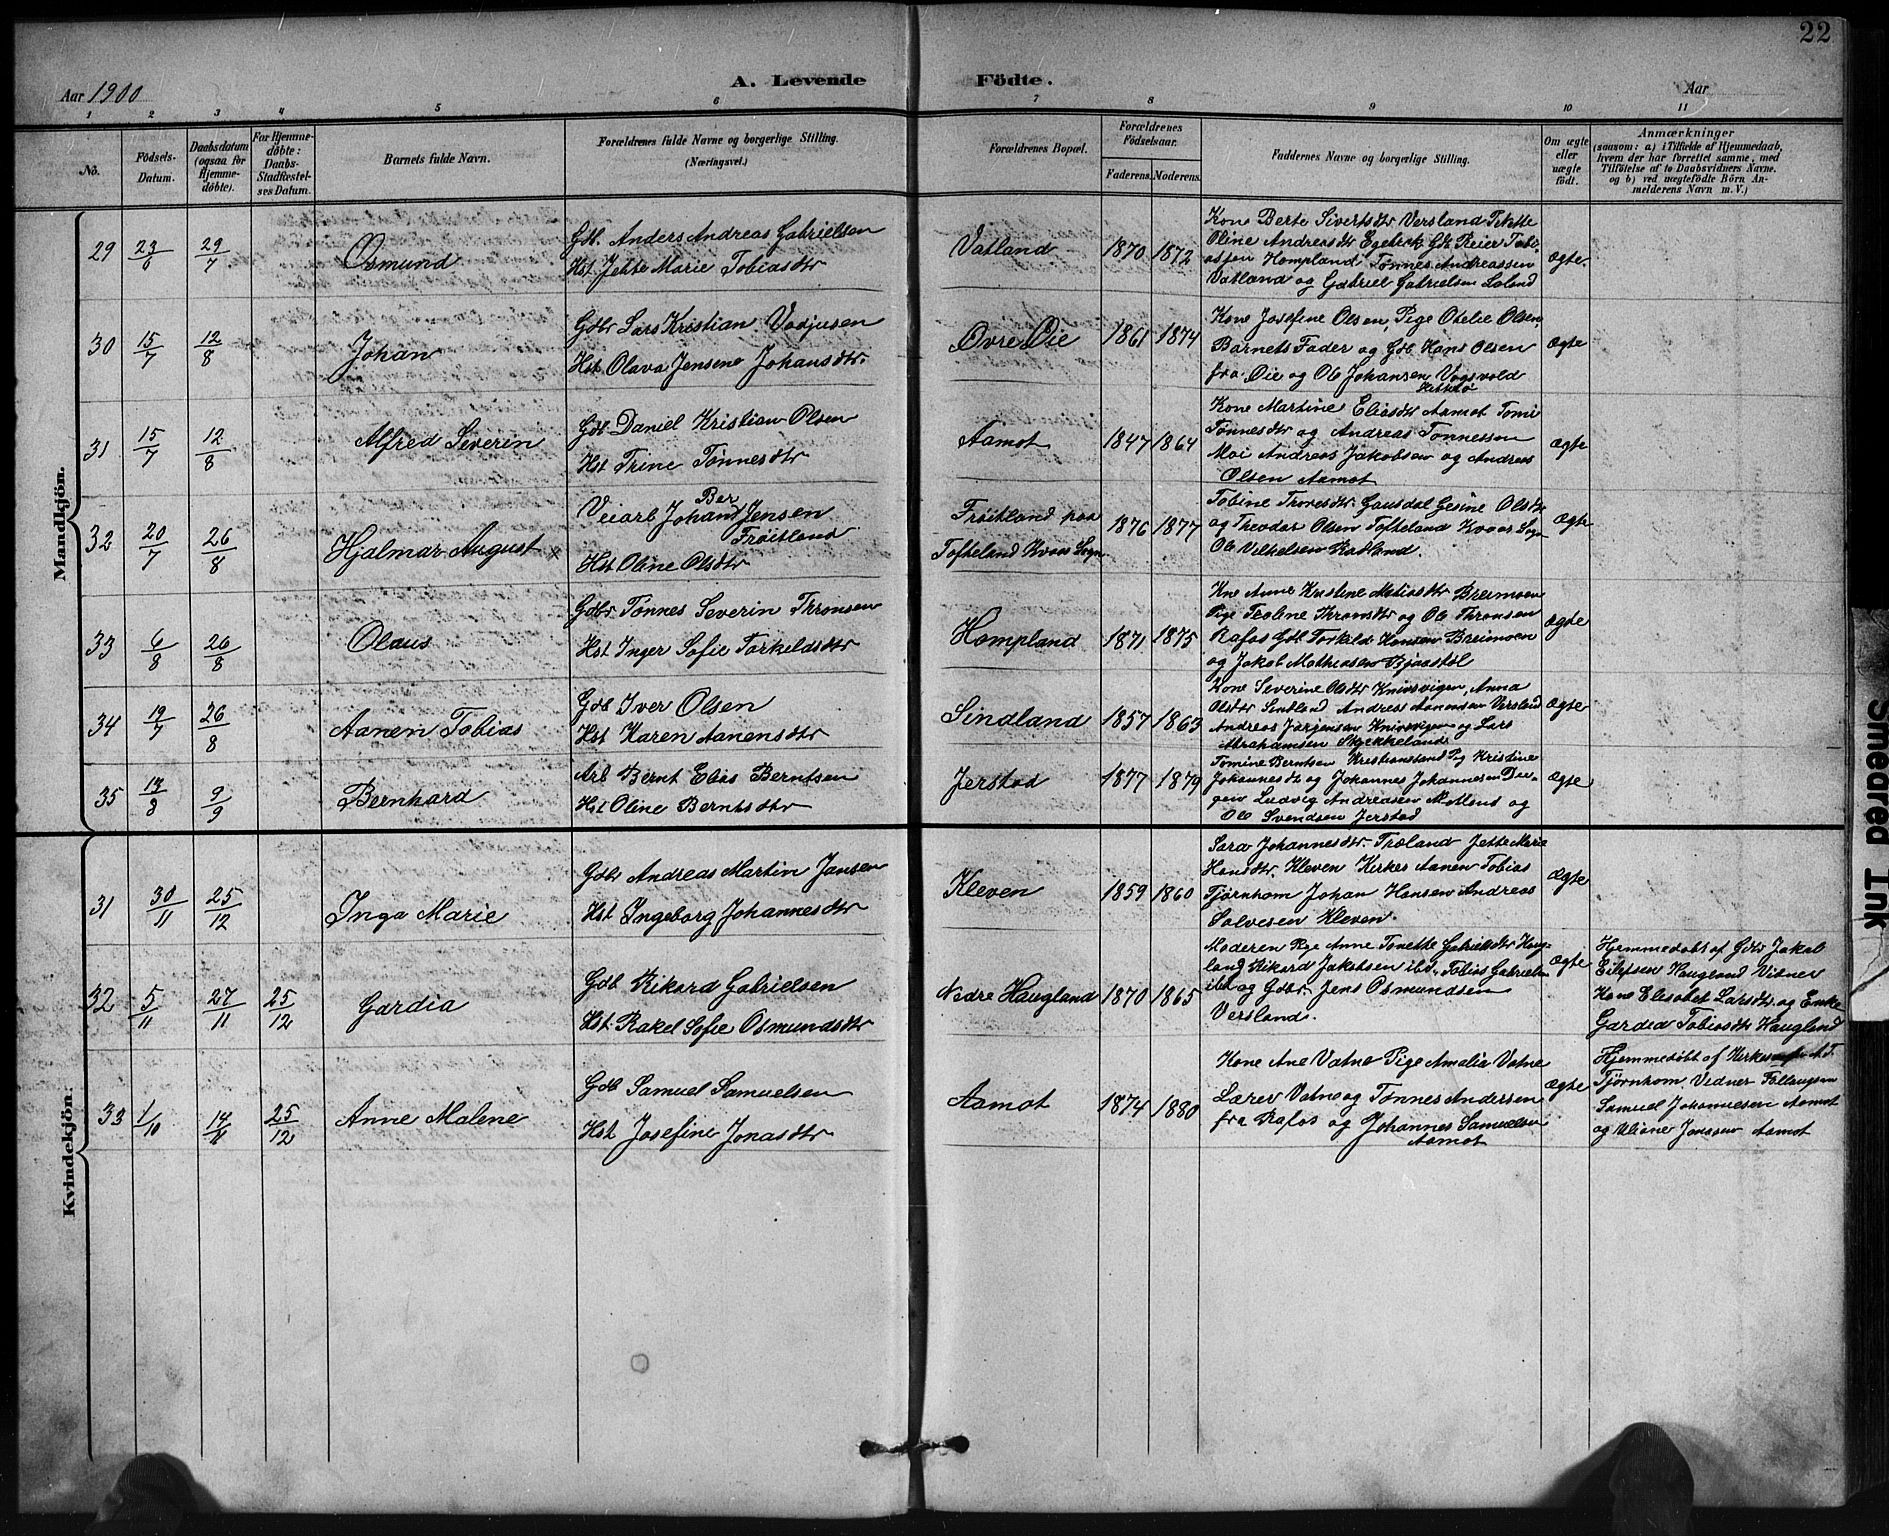 22
A. Levende Födte.
Aar 1900
Aar
1 2 3 4 5 6 7 8 9 10 11
No.
Födsels-Datum.
Daabsdatum (ogsaa for Hjemmedöbte).
For Hjemmedöbte: Daabs-Stadfæstelses Datum.
Barnets fulde Navn.
Forældrenes fulde Navne og borgerlige Stilling.
(Næringsvei.)
Forældrenes Bopæl.
Forældrenes Födselsaar.
Faderens. Moderens.
Faddernes Navne og borgerlige Stilling.
Om ægte eller uægte födt.
Anmærkninger
(saasom: a) i Tilfælde af Hjemmedaab,
hvem der har forrettet samme, med
Tilföielse af to Daabsvidners Navne,
og b) ved uægtefödte Börn Anmelderens Navn m. V.)
Mandkjön.
29 23/6 29/7 Osmund
Gdb. Anders Andreas Gabrielsen
Hst Jette Marie Tobiasdtr
Vatland 1870 1872
Kone Berte Sivertsdtr Versland
Oline Andreasdtr Egebæk Gdb Reier Tobiassen Hompland Tønnes Andreassen
Vatland og Gabriel Gabrielsen
Ægte
30 15/7 12/8 Johan
Gdbr Lars Kristian
Hst Olava Jensene Johansdtr
Øvre Øie 1861 1874
Kone Josefine Olsen, Pige Otelie Olsen
Barnets Fader og Gdb Hans Olsen
fra Øie og Ole Johansen
Ægte
31 15/7 12/8 Alfred Severin
Gdb Daniel Kristian Olsen
Hst Trine Tønnesdtr
Aamot 1847 1864
Kone Martine Eliasdtr Aamot
Tønnesdtr og Andreas Tønnessen
Moi Andreas Jakobsen og Andreas
Olsen Aamot
Ægte
32 20/7 26/8 Hjalmar August x
Veiarb Johan Ber Jensen
Frøitland
Hst Oline Olsdtr
Frøitland paa
Tofteland Kvaas Sogn
1876 1877
Tobine Gausdal Gesine Olsdtr
og Theodor Olsen Tofteland Kvaas Sogn
Ole
Ægte
33 6/8 26/8 Olaus
Gdbr Tønnes Severin Thronsen
Hst Inger Sofie Torkeldsdtr
Hompland 1871 1875
Kne Anne Kristene Matiasdtr Breimoen
Pige Teoline Thronsdtr og Ole Thronsen
Rafos Gdb Torkild Hansen Breimoen
og Jakob Mathiasen
Ægte
34 19/7 26/8 Aanen Tobias
Gdb Iver Olsen
Hst Karen Aanensdtr
Sindland 1857 1863
Kone Severine Olsdtr Knivsvigen, Anna
Olsdtr Sindland Andreas Aanensen Versland
Andreas Jørgensen Knivsvigen og Lars
Abrahamsen
Ægte
35 14/8 9/9 Bernhard
Arb Bernt Elias Berntsen
Hst Oline Berntsdtr
Jerstad 1877 1879
Tomine Berntsen Kristiansand Pg Kristine
Johannesdtr og Johannes Johannesen
Ludvig Andreasen og
Ole Svendsen Jerstad
Ægte
Kvindekjön.
31 30/11 25/12 Inga Marie
Gdbr Andreas Martin Jansen
Hst Ingeborg Johannesdtr
Kleven 1859 1860
Sara Johannesdtr Træland Jette Marie
Hansdtr Kleven Kirkes Aanen Tobias
Tjørnhom Johan Hansen Andreas
Salvesen Kleven.
Ægte
32 5/11 27/11 25/12 Gardia
Gdb Rikard Gabrielsen
Hst. Rakel Sofie Osmundsdtr
Nedre Haugland 1870 1865
Moderen Pge Anne Tonette Gabrielsdtr Haugland Rikard Jakobsen ibd., Tobias Gabrielsen
ibd og Gdbr. Jens Osmundsen
Versland.
Ægte
Hjemmedøbt af Gdbr Jakob
Eilefsen Haugland Vidner
Kone Elisabet Larsdtr og Enke
Gardia Tobiasdtr Haugland
33 1/10 14/11 25/12 Anne Malene
Gdb Samuel Samuelsen
Hst Josefine Jonasdtr
Aamot 1874 1880
Kone Ane Vatne Pige Amalia Vatne
Lærer Vatne og Tønnes Andersen
fra Rafos og Johannes Samuelsen
Aamot
Ægte
Hjemmedøbt af A T.
Tjørnhom Vidner
Samuel Johannesen Aamot
og Jonassen Aamot
Smeared Ink